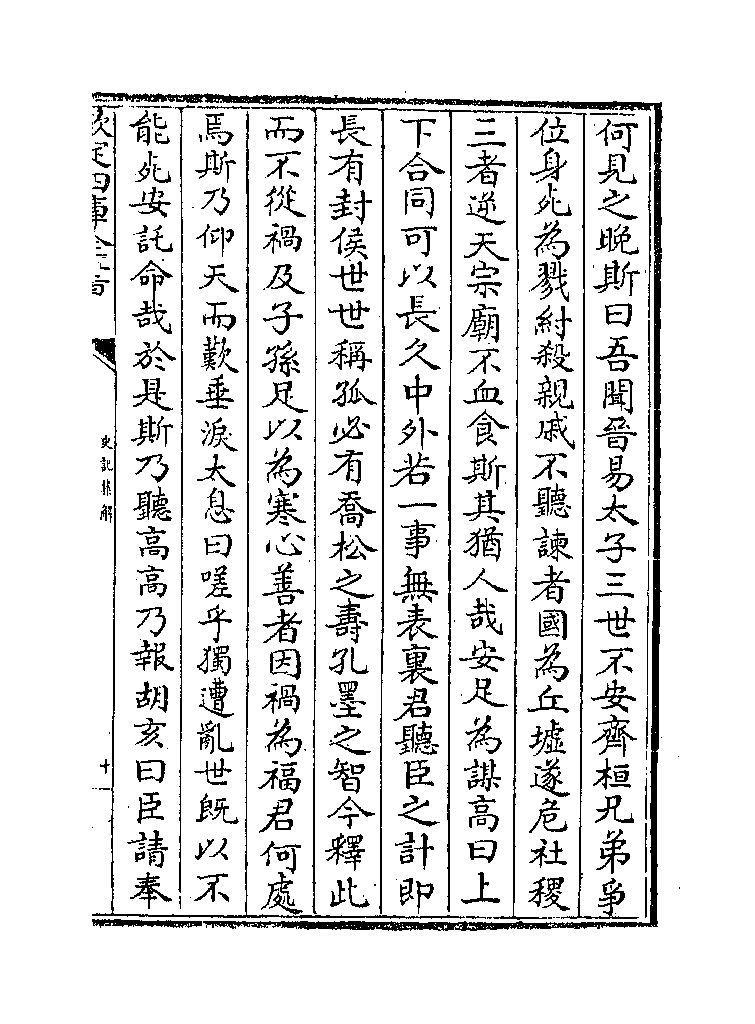 何見之晚斯曰吾聞晉易太子三世不安齊桓兄弟爭
位身死為戮紂殺親戚不聽諫者國為丘墟遂危社稷
三者逆天宗廟不血食斯其猶人哉安足為謀高曰上
下合同可以長久中外若一事無表裏君聽臣之計即
長有封侯世世稱孤必有喬松之壽孔墨之智今釋此
而不從禍及子孫足以為寒心善者因禍為福君何處
焉斯乃仰天而歎垂淚太息曰嗟乎獨遭亂世既以不
能死安託命哉於是斯乃聽高高乃報胡亥曰臣請奉
欽定四庫全書
史記集解
十